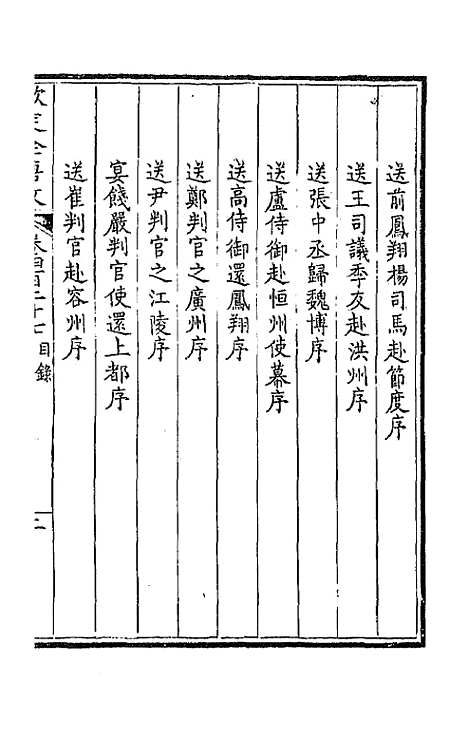 送前鳳翔楊司馬赴節度序
送王司議季友赴洪州序
送張中丞歸魏博序
送盧侍御赴恒州使幕序
送高侍御還鳳翔序
送鄭判官之廣州序
送尹判官之江陵序
宴餞嚴判官使還上都序
送崔判官赴容州序
欽定全唐文
卷四百二十七目錄